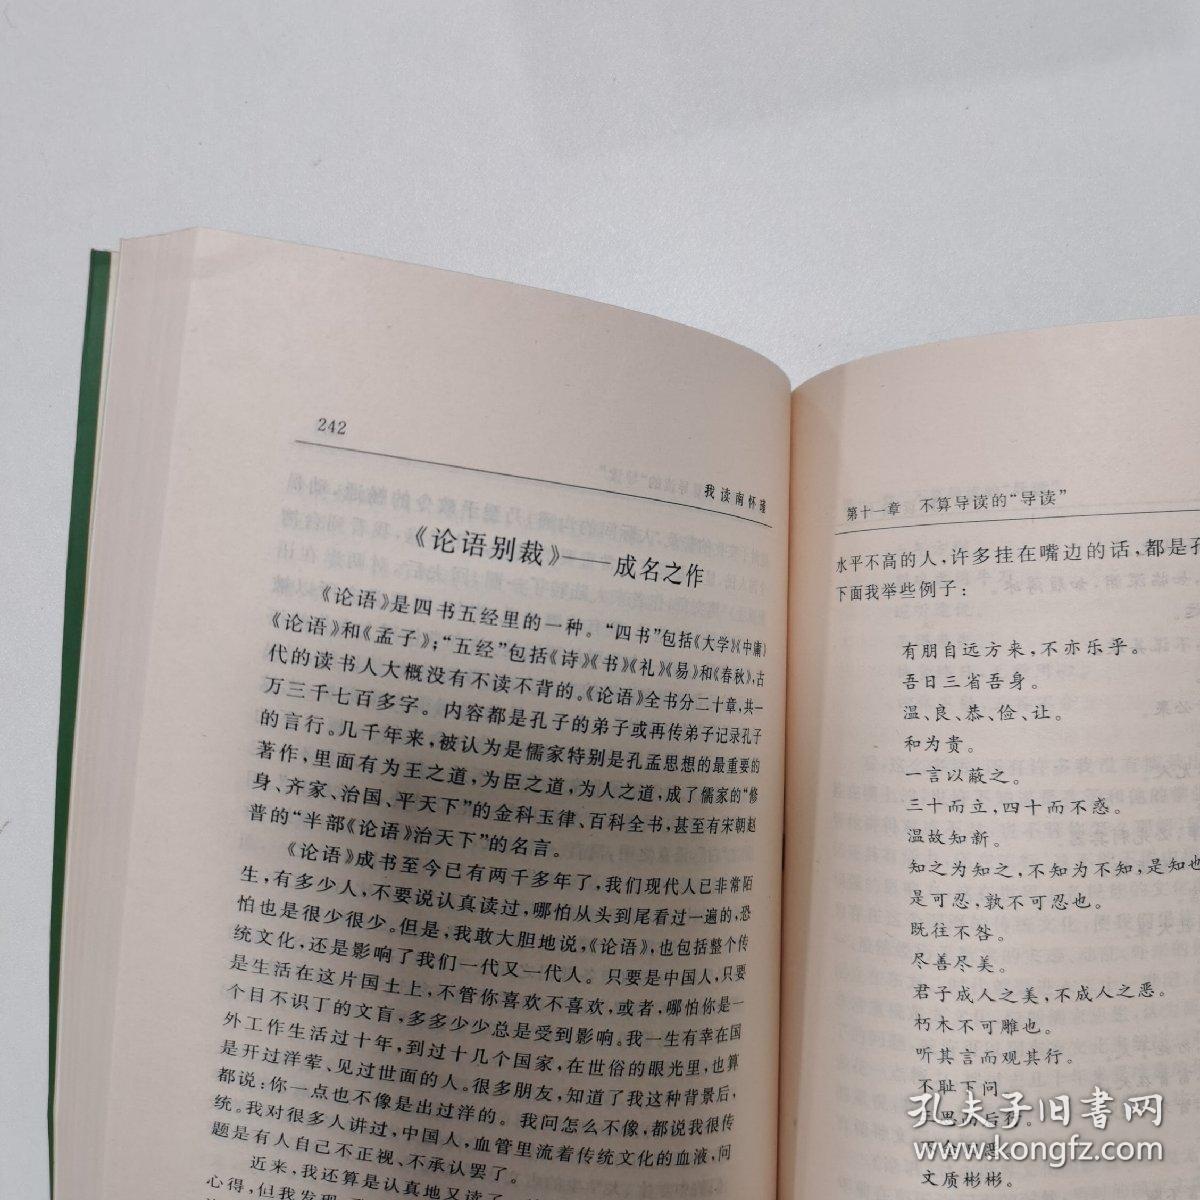 242
我读南怀瑾
《论语别裁》——成名之作
《论语》是四书五经里的一种。“四书”包括《大学》《中庸》
《论语》和《孟子》；“五经”包括《诗》《书》《礼》《易》和《春秋》，古
代的读书人大概没有不读不背的。《论语》全书分二十章，共一
万三千七百多字。内容都是孔子的弟子或再传弟子记录孔子
的言行。几千年来，被认为是儒家特别是孔孟思想的最重要的
著作，里面有为王之道，为臣之道，为人之道，成了儒家的“修
身、齐家、治国、平天下”的金科玉律、百科全书，甚至有宋朝赵
普的“半部《论语》治天下”的名言。
《论语》成书至今已有两千多年了，我们现代人已非常陌
生，有多少人，不要说认真读过，哪怕从头到尾看过一遍的，恐
怕也是很少很少。但是，我敢大胆地说，《论语》，也包括整个传
统文化，还是影响了我们一代又一代人。只要是中国人，只要
是生活在这片国土上，不管你喜欢不喜欢，或者，哪怕你是一
个目不识丁的文盲，多多少少总是受到影响。我一生有幸在国
外工作生活过十年，到过十几个国家，在世俗的眼光里，也算
是开过洋荤、见过世面的人。很多朋友，知道了我这种背景后，
都说：你一点也不像是出过洋的。我问怎么不像，都说我很传
统。我对很多人讲过，中国人，血管里流着传统文化的血液，问
题是有人自己不正视、不承认罢了。
近来，我还算是认真地又读了
心得，但我发现
第十一章 不算导读的“导读”
水平不高的人，许多挂在嘴边的话，都是孔
下面我举些例子：
有朋自远方来，不亦乐乎。
吾日三省吾身。
温、良、恭、俭、让。
和为贵。
一言以蔽之。
三十而立，四十而不惑。
温故知新。
知之为知之，不知为不知，是知也
是可忍，孰不可忍也。
既往不咎。
尽善尽美。
君子成人之美，不成人之恶。
朽木不可雕也。
听其言而观其行。
不耻下问。
文质彬彬。
孔夫子旧书网
www.kongfz.com